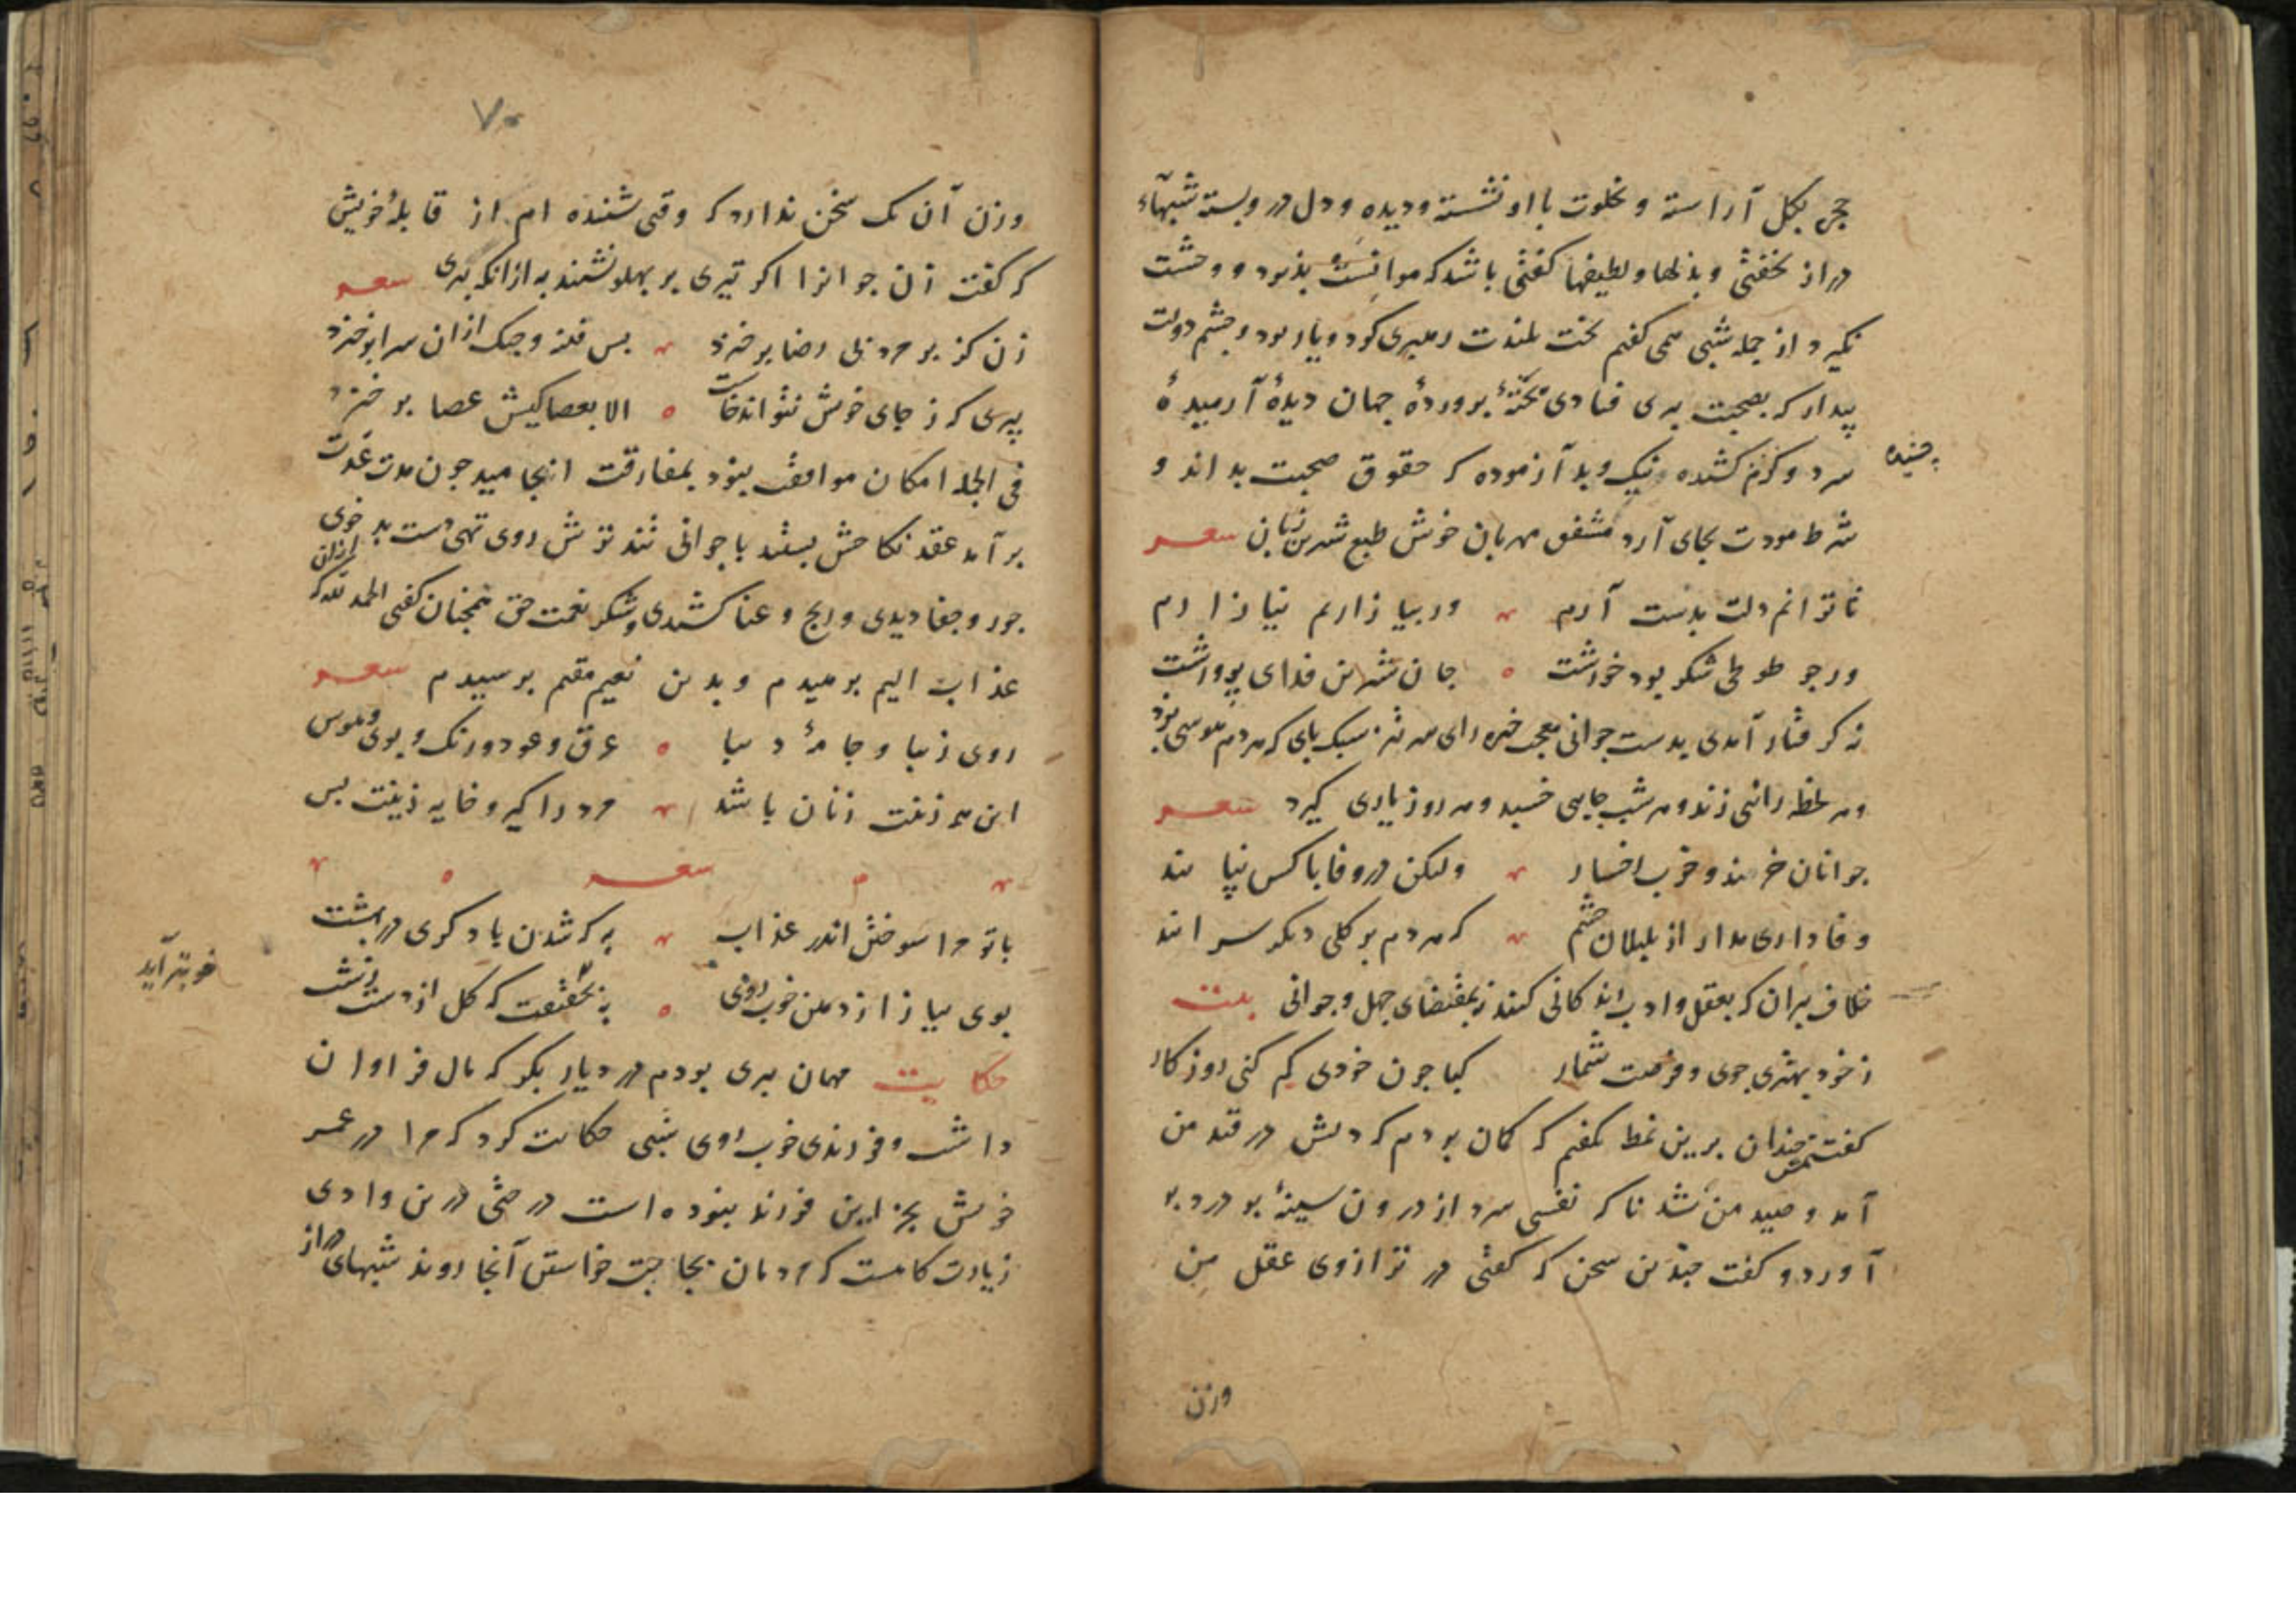 حجره بکل آراسته و بخلوت با او نشسته و دیده و دل در و بسته شبهآء
دراز نخفتی و بذلها و لطیفها کفتی باشد که موانست پذیرد و وحشت
نکیرد از جمله شبی همی کفتم بخت بلندت رهبری کرد و یار بود و چشم دولت
بیدار که بصحبت پیری فتادی پختهٔ پروردهٔ جهان دیدهٔ آرمیدهٔ
سرد و کرم کشیده و نیک و بد آزموده که حقوق صحبت بداند و
چشیده
شرط مودت بجای آرد مشفق مهربان خوش طبع شیرین زبان شعر
تا توانم دلت بدست آرم ور بیازاریم نیازارم
ور چو طوطی شکر بود خورشت جان شیرین فدای پرورشت
نه کرفتار آمدی بدست جوانی معجب خیره رای سر تیز سبک پای که هر دم هوسی پزد
و هر لحظه رائی زند و هر شب جایی خسبد و هر روز یاری کیرد شعر
جوانان خرمند و خوب رخسار ولیکن در وفا با کس نپایند
وفاداری مدار از بلبلان چشم که هر دم بر کلی دیکر سرایند
خلاف پیران که بعقل و ادب زندکانی کنند نه بمقتضای جهل و جوانی بیت
ز خود بهتری جوی و فرصت شمار که با چون خودی کم کنی روزکار
کفت چندان برین نمط بکفتم که کمان بردم که دلش در قید من
آمد و صید من شد ناکه نفسی سرد از درون سینهٔ پر درد بر
آورد و کفت چندین سخن که کفتی در ترازوی عقل من
وزن
۷۰
وزن آن یک سخن ندارد که وقتی شنیده ام از قابلهٔ خویش
که کفت زن جوانرا اکر تیری بر پهلو نشیند به از انکه پیری شعر
زن کز بر مرد بی رضا برخیزد بس فتنه و جنک از ان سرا برخیزد
پیری که ز جای خویش نتواند خاست الا بعصا کیش عصا برخیزد
فی الجمله امکان موافقت نبود بمفارقت انجامید چون مدت عدت
برآمد عقد نکاحش بستند با جوانی تند ترش روی تهی دست بد خوی
جور و جفا دیدی و رنج و عنا کشیدی و شکر نعمت حق همچنان کفتی الحمد لله که ازان
عذاب الیم برهیدم و بدین نعیم مقیم برسیدم شعر
روی زیبا و جامهٔ دیبا عرق و عود و رنک و بوی و هوس
این همه زینت زنان باشد مرد را کیر و خایه زینت بس
شعر
با تو مرا سوختن اندر عذاب به که شدن با دکری در بهشت
بوی پیاز از دهن خوب روی به بحقیقت که کل از دست زشت
خوبتر آید
حکایت مهمان پیری بودم در دیار بکر که مال فراوان
داشت و فرزندی خوب روی شبی حکایت کرد که مرا در عمر
خویش بجز این فرزند نبوده است درختی درین وادی
زیارت کاهست که مردمان بحاجت خواستن آنجا روند شبهای دراز